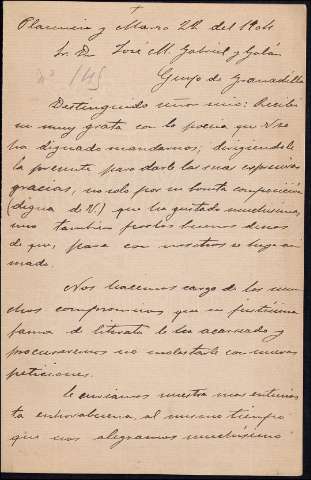 Plasencia y Marzo 22 del 1904
Sr. Dn José M. Gabriel y Galán
Nº 145
Guijo de Granadilla
Distinguido Sr mio: Recibí
su muy grata con la poesia que V. se
ha dignado mandarnos; dirigiendole
la presente para darle las mas expresivas
gracias, no solo por su bonita composición
(digna de V.) que ha gustado muchisimo,
sino tambien por los buenos deseos
de que, para con nosotros se halla ani
mado.
Nos hacemos cargo de los mu
chos compromisos que su justisima
fama de literato le ha acarreado y
procuraremos no molestarle con nuevas
peticiones.
Le enviamos nuestra mas entusias
ta enhorabuena, al mismo tiempo
que nos alegramos muchisimo